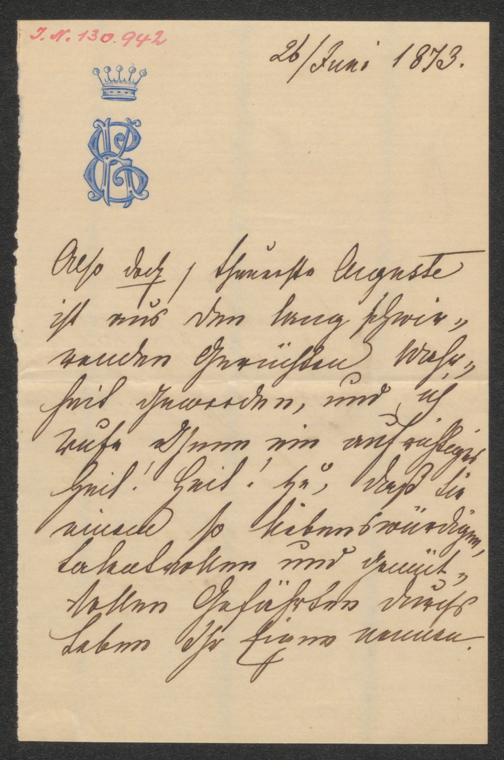 I. N. 130.942
26/Juni 1873.
Also doch, theuerste Auguste
ist aus den lang schwir„
renden Gerüchten Wahr„
heit geworden, und ich
rufe Ihnen ein aufrichtiges
Heil! Heil! zu, daß Sie
einen so liebenswürdigen,
talentvollen und gemüt„
vollen Gefährten durchs
Leben Ihr Eigen nennen.